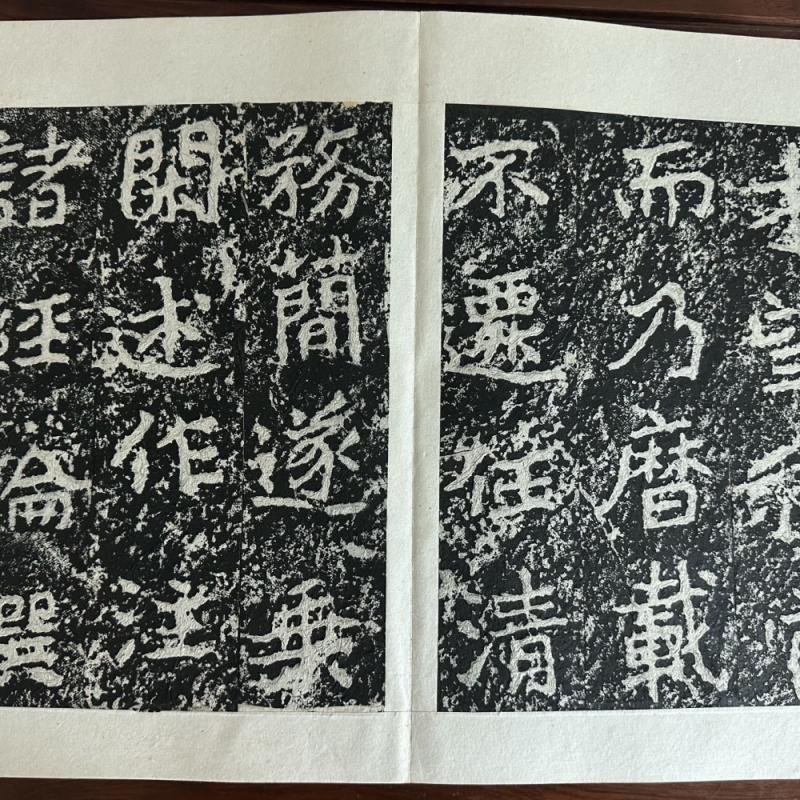 而乃曆載
不遷任清
務簡遂乗
閑述作注
諸經論撰